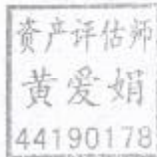 资产评估师
黄爱娟
44190178